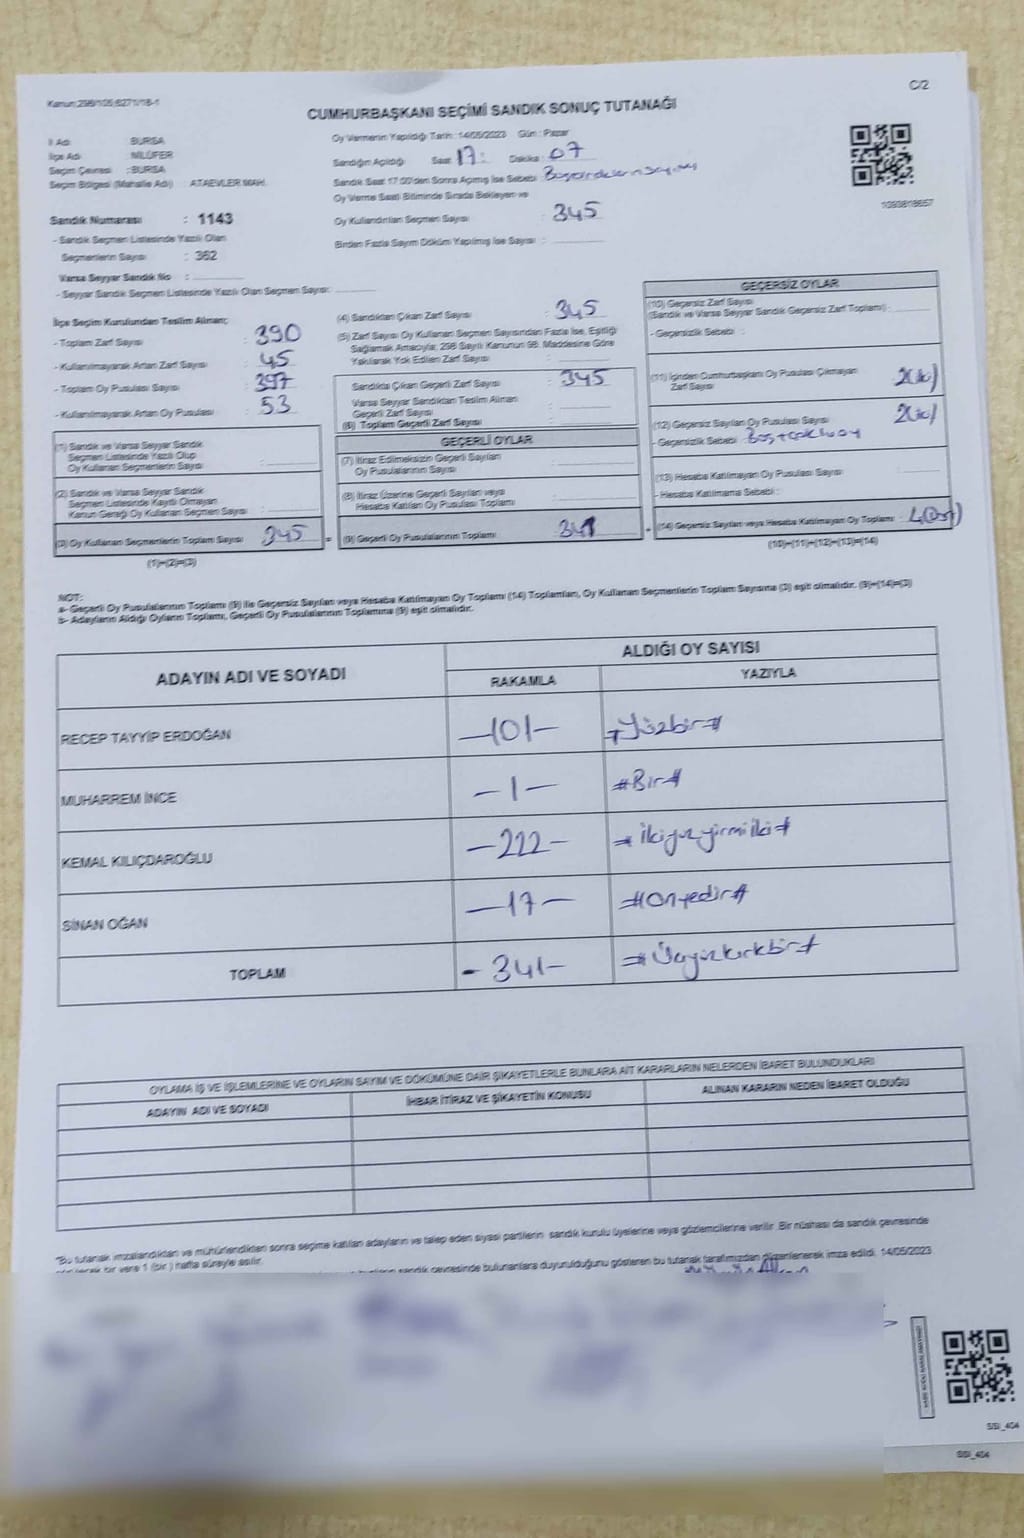 Kanun:298/105;6271/18-1
C/2
CUMHURBAŞKANI SEÇİMİ SANDIK SONUÇ TUTANAĞI
İl Adı : BURSA
İlçe Adı : NİLÜFER
Seçim Çevresi : BURSA
Seçim Bölgesi (Mahalle Adı) : ATAEVLER MAH.
Oy Vermenin Yapıldığı Tarih: 14/05/2023 Gün : Pazar
Sandığın Açıldığı Saat 17: Dakika : 07
Sandık Saat 17:00'den Sonra Açılmış İse Sebebi :
Oy Verme Saati Bitiminde Sırada Bekleyen ve
Oy Kullandırılan Seçmen Sayısı : 345
Birden Fazla Sayım Döküm Yapılmış İse Sayısı :
1093818657
Sandık Numarası : 1143
- Sandık Seçmen Listesinde Yazılı Olan
Seçmenlerin Sayısı : 362
Varsa Seyyar Sandık No :
- Seyyar Sandık Seçmen Listesinde Yazılı Olan Seçmen Sayısı:
İlçe Seçim Kurulundan Teslim Alınan;
- Toplam Zarf Sayısı : 390
- Kullanılmayarak Artan Zarf Sayısı : 45
- Toplam Oy Pusulası Sayısı : 397
- Kullanılmayarak Artan Oy Pusulası : 53
(1) Sandık ve Varsa Seyyar Sandık
Seçmen Listesinde Yazılı Olup
Oy Kullanan Seçmenlerin Sayısı :
(2) Sandık ve Varsa Seyyar Sandık
Seçmen Listesinde Kayıtlı Olmayan
Kanun Gereği Oy Kullanan Seçmen Sayısı :
(3) Oy Kullanan Seçmenlerin Toplam Sayısı : 345
(1)+(2)=(3)
(4) Sandıktan Çıkan Zarf Sayısı : 345
(5) Zarf Sayısı Oy Kullanan Seçmen Sayısından Fazla İse, Eşitliği
Sağlamak Amacıyla; 298 Sayılı Kanunun 98. Maddesine Göre
Yakılarak Yok Edilen Zarf Sayısı :
Sandıkta Çıkan Geçerli Zarf Sayısı : 345
Varsa Seyyar Sandıktan Teslim Alınan
Geçerli Zarf Sayısı :
(6) Toplam Geçerli Zarf Sayısı :
GEÇERLİ OYLAR
(7) İtiraz Edilmeksizin Geçerli Sayılan
Oy Pusulalarının Sayısı :
(8) İtiraz Üzerine Geçerli Sayılan veya
Hesaba Katılan Oy Pusulası Toplamı :
= (9) Geçerli Oy Pusulalarının Toplamı : 341
GEÇERSİZ OYLAR
(10) Geçersiz Zarf Sayısı
(Sandık ve Varsa Seyyar Sandık Geçersiz Zarf Toplamı) :
- Geçersizlik Sebebi :
(11) İçinden Cumhurbaşkanı Oy Pusulası Çıkmayan
Zarf Sayısı : 2(iki)
(12) Geçersiz Sayılan Oy Pusulası Sayısı : 2(iki)
- Geçersizlik Sebebi :
(13) Hesaba Katılmayan Oy Pusulası Sayısı :
- Hesaba Katılmama Sebebi :
+ (14) Geçersiz Sayılan veya Hesaba Katılmayan Oy Toplamı : 4(Dört)
(10)+(11)+(12)+(13)=(14)
NOT:
a- Geçerli Oy Pusulalarının Toplamı (9) ile Geçersiz Sayılan veya Hesaba Katılmayan Oy Toplamı (14) Toplamları, Oy Kullanan Seçmenlerin Toplam Sayısına (3) eşit olmalıdır. (9)+(14)=(3)
b- Adayların Aldığı Oyların Toplamı, Geçerli Oy Pusulalarının Toplamına (9) eşit olmalıdır.
ADAYIN ADI VE SOYADI ALDIĞI OY SAYISI
RAKAMLA YAZIYLA
RECEP TAYYİP ERDOĞAN —101— #Yüzbir#
MUHARREM İNCE —1— #Bir#
KEMAL KILIÇDAROĞLU —222— #İkiyüzyirmiiki#
SİNAN OĞAN —17— #Onyedi#
TOPLAM —341— #Üçyüzkırkbir#
OYLAMA İŞ VE İŞLEMLERİNE VE OYLARIN SAYIM VE DÖKÜMÜNE DAİR ŞİKAYETLERLE BUNLARA AİT KARARLARIN NELERDEN İBARET BULUNDUKLARI
ADAYIN ADI VE SOYADI İHBAR İTİRAZ VE ŞİKAYETİN KONUSU ALINAN KARARIN NEDEN İBARET OLDUĞU
"Bu tutanak imzalandıktan ve mühürlendikten sonra seçime katılan adayların ve talep eden siyasi partilerin sandık kurulu üyelerine veya gözlemcilerine verilir. Bir nüshası da sandık çevresinde
bir yere 1 (bir) hafta süreyle asılır.
sandık çevresinde bulunanlara duyurulduğunu gösteren bu tutanak tarafımızdan düzenlenerek imza edildi. 14/05/2023
SSI_404
SSI_404